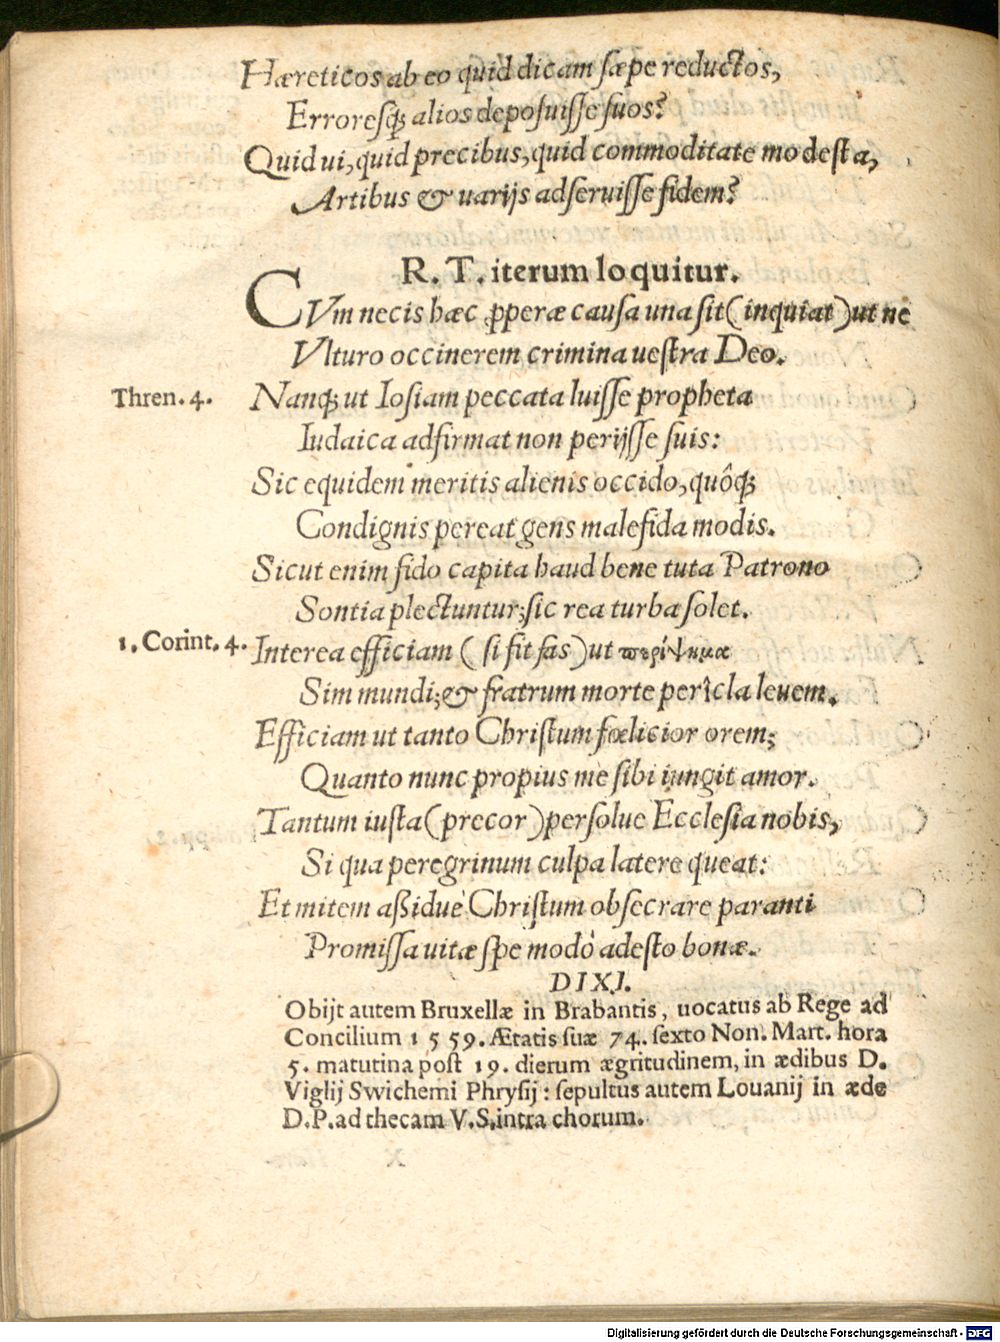 Hæreticos ab eo quid dicam sæpe reductos,
Erroresq́; alios deposuisse suos?
Quid ui, quid precibus, quid commoditate modesta,
Artibus & uarijs adseruisse fidem?
R. T. iterum loquitur.
CVm necis hæc ꝓperæ causa una sit (inquiat) ut ne
Vlturo occinerem crimina uestra Deo.
Thren. 4. Nanq́; ut Iosiam peccata luisse propheta
Iudaica adfirmat non perijsse suis:
Sic equidem meritis alienis occido, quôq́;
Condignis pereat gens malefida modis.
Sicut enim fido capita haud bene tuta Patrono
Sontia plectuntur; sic rea turba solet.
1. Corint. 4. Interea efficiam (si fit fas) ut περίψημα
Sim mundi; & fratrum morte perîcla leuem.
Efficiam ut tanto Christum fœlicior orem;
Quanto nunc propius me sibi iungit amor.
Tantum iusta (precor) persolue Ecclesia nobis,
Si qua peregrinum culpa latere queat:
Et mitem aßiduè Christum obsecrare paranti
Promissa uitæ spe modò adesto bonæ.
DIXI.
Obijt autem Bruxellæ in Brabantis, uocatus ab Rege ad
Concilium 1559. Ætatis suæ 74. sexto Non. Mart. hora
5. matutina post 19. dierum ægritudinem, in ædibus D.
Viglij Swichemi Phrysij: sepultus autem Louanij in æde
D. P. ad thecam V. S. intra chorum.
Digitalisierung gefördert durch die Deutsche Forschungsgemeinschaft - DFG